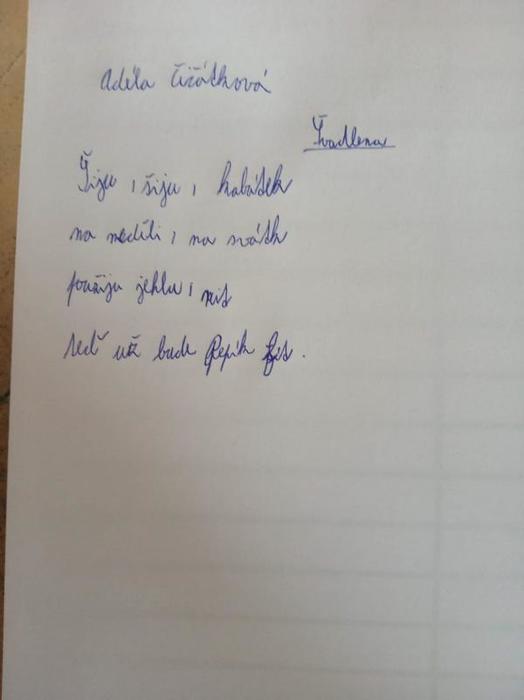 Adéla Čižátková
Švadlena
Šiju, šiju, kabátek
na neděli, na svátk
použiju jehlu, nit
teď už bude Pepík fit.